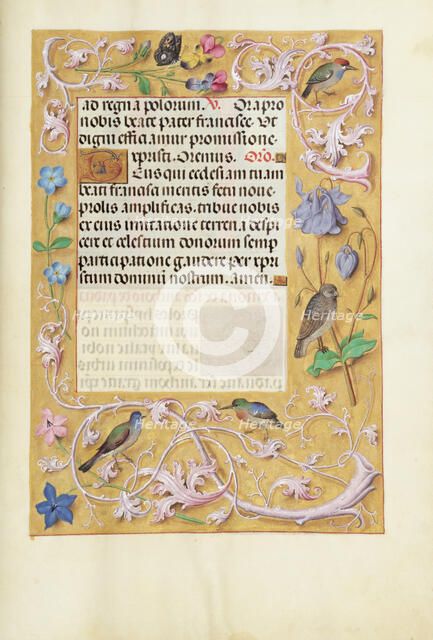 ad regna polorum. V. Ora pro
nobis beate pater francisce. Ut
digni efficiamur promissione
xpristi. Oremus. Oro.
Deus qui ecclesiam tuam
beati francisci meritis fetu noue
prolis amplificas. tribue nobis
ex eius imitatione terrena despi
cere et celestium donorum semp
participatione gaudere per xpri
stum dominum nostrum. amen.
Heritage
Heritage
Heritage
Heritage
Heritage
Heritage
Heritage